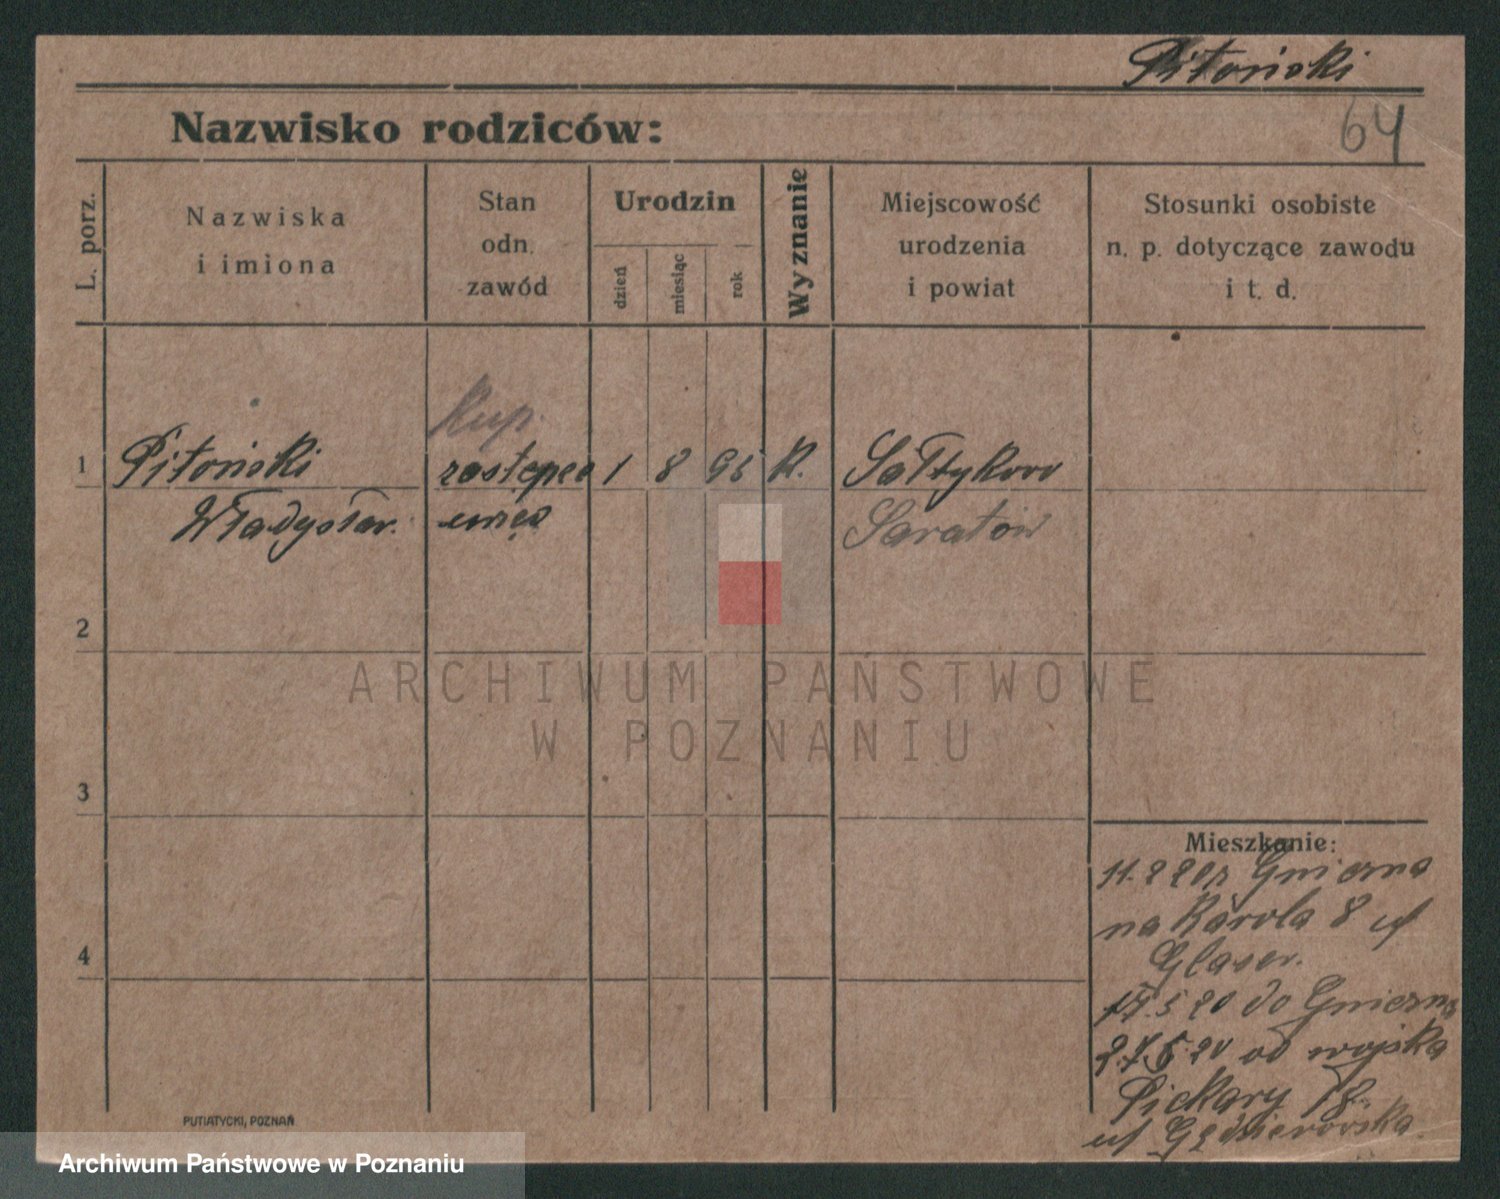 Pitoński
64
Nazwisko rodziców:
L. porz.
Nazwiska
i imiona
Stan
odn.
zawód
Urodzin
dzień
miesiąc
rok
Wyznanie
Miejscowość
urodzenia
i powiat
Stosunki osobiste
n. p. dotyczące zawodu
i t. d.
Kup.
1 Pitoński 1 8 95 K. Sałtykowo
Władysław. Saratów
2
ARCHIWUM PAŃSTWOWE
W POZNANIU
3
4
Mieszkanie:
11.2 20 z Gniezna
na Karola 8 u/
Glaser.
17.5 20 do Gniezna
27.5.20 od wojska
Piekary 18
u/
PUTIATYCKI, POZNAŃ
Archiwum Państwowe w Poznaniu